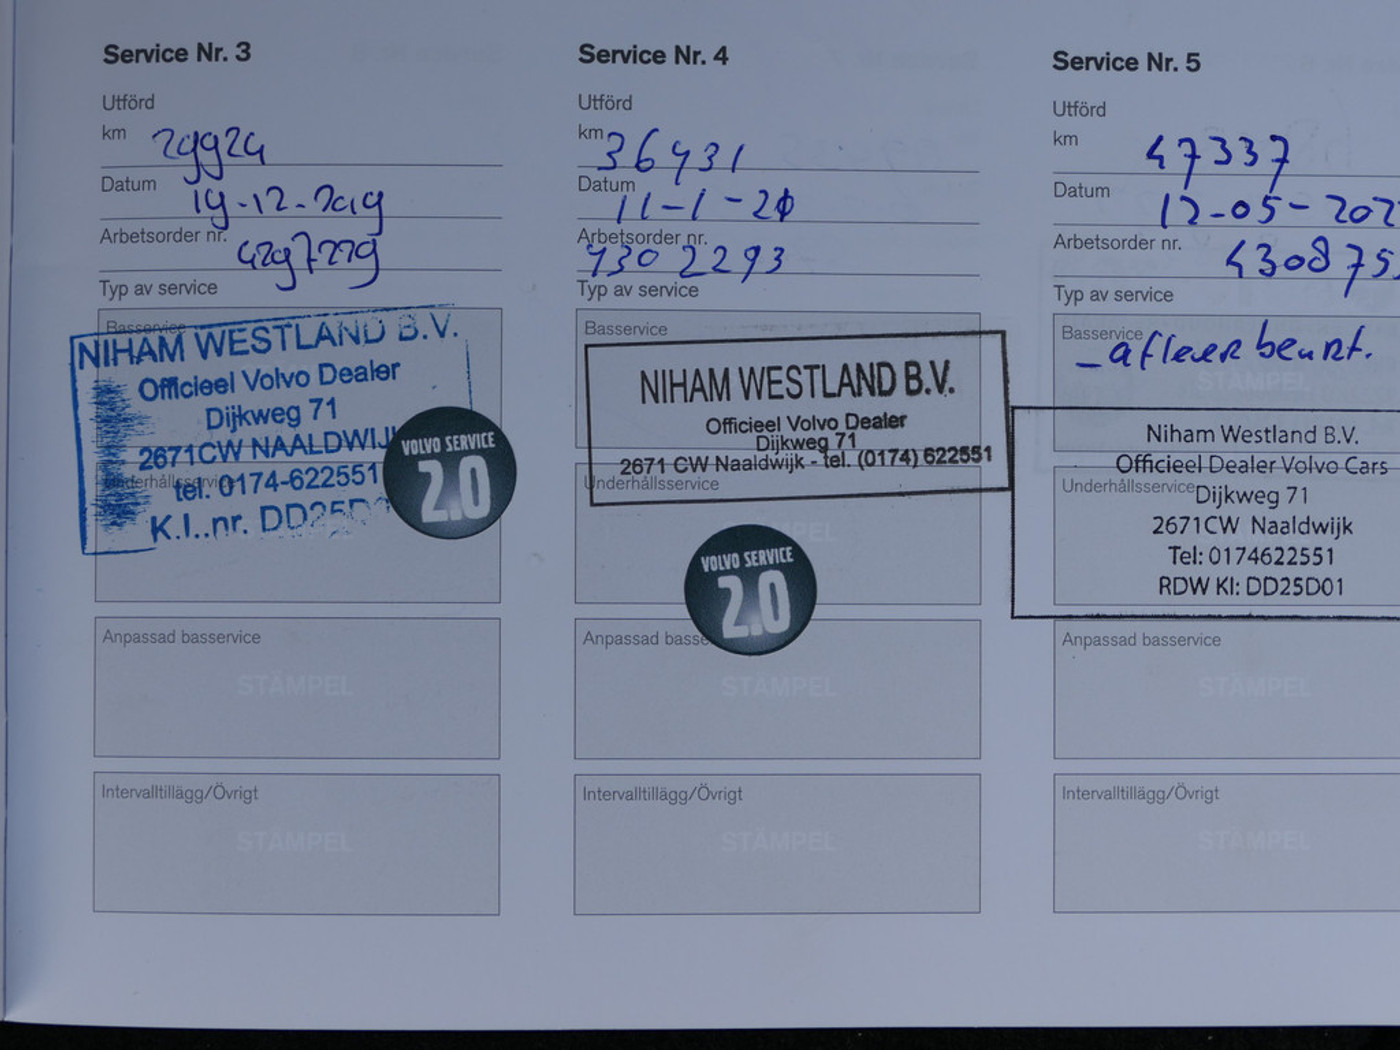 Service Nr. 3
Utförd
km 29924
Datum 19-12-2019
Arbetsorder nr. 4297229
Typ av service
Basservice
NIHAM WESTLAND B.V.
Officieel Volvo Dealer
Dijkweg 71
2671CW NAALDWIJ
tel. 0174-622551
K.I..nr. DD25D
VOLVO SERVICE
2.0
Underhållsservice
STÄMPEL
Anpassad basservice
STÄMPEL
Intervalltillägg/Övrigt
STÄMPEL
Service Nr. 4
Utförd
km 36431
Datum 11-1-21
Arbetsorder nr.
4302293
Typ av service
Basservice
NIHAM WESTLAND B.V.
Officieel Volvo Dealer
Dijkweg 71
2671 CW Naaldwijk - tel. (0174) 622551
Underhållsservice
STÄMPEL
VOLVO SERVICE
2.0
Anpassad basse
STÄMPEL
Intervalltillägg/Övrigt
STÄMPEL
Service Nr. 5
Utförd
km 47337
Datum 12-05-202
Arbetsorder nr. 430875
Typ av service
Basservice
- afleverbeurt.
STÄMPEL
Niham Westland B.V.
Officieel Dealer Volvo Cars
Underhållsservice
Dijkweg 71
2671CW Naaldwijk
Tel: 0174622551
RDW KI: DD25D01
Anpassad basservice
STÄMPEL
Intervalltillägg/Övrigt
STÄMPEL